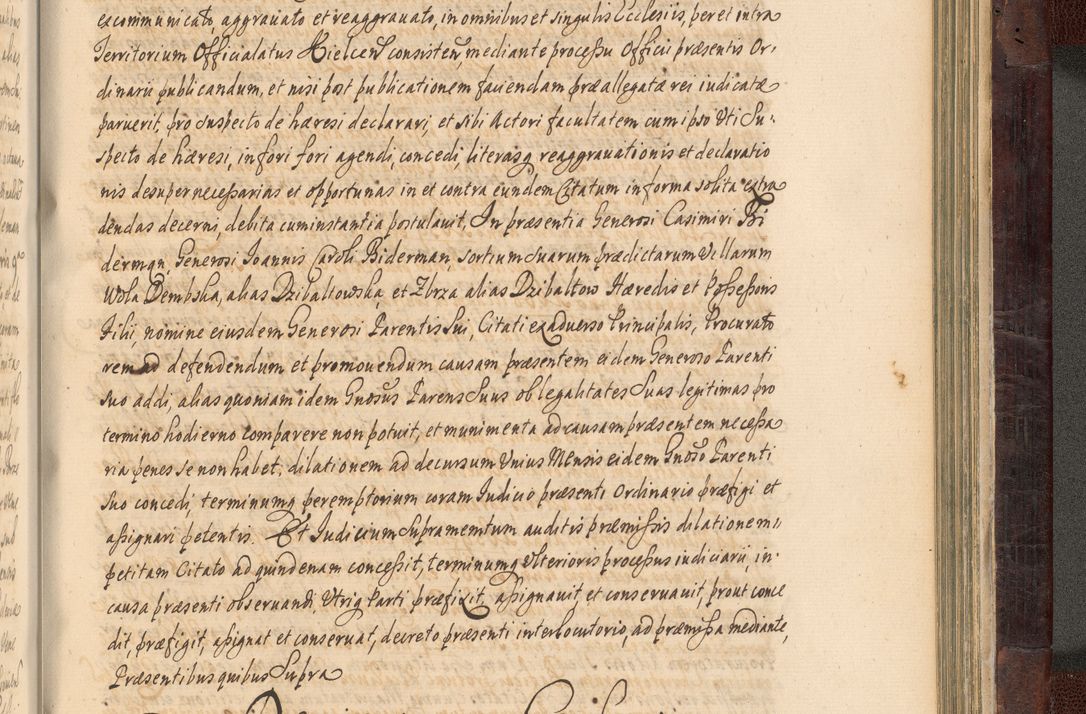 excommunicato aggrauato et reaggrauato, in omnibus et singulis Ecclesiis, per et intra
Territorium Officialatus Kielceñ consisteñ mediante processu Officii præsentis Or-
dinarii publicandum, et nisi post publicationem faciendam præallegatæ rei iudicatæ
paruerit, pro suspecto de hæresi declarari, et sibi Actori facultatem cum ipso uti Su-
specto de hæresi, in fori fori agendi, concedi, literasq reaggrauationis et declaratio
nis desuper necessarias et opportunas in et contra eundem Citatum in forma solita extra
dendas decerni, debita cum instantia postulauit. In præsentia Generosi Casimiri Bi
derman, Generosi Joannis Caroli Biderman, sortium suarum prædictarum Villarum
Wola Dembska, alias Dzibaltowska, et Zbrza alias Dzibaltow Hæredis et Possessoris
Filii, nomine eiusdem Generosi Parentis Sui, Citati ex aduerso Principalis, Procurato
rem ad defendendum et promouendum causam præsentem eidem Generoso Parenti
suo addi, alias quoniam idem Gnosus Parens Suus ob legalitates Suas legitimas pro
termino hodierno comparere non potuit, et munimenta ad causam præsentem necessa
ria penes se non habet, dilationem ad decursum Unius Mensis eidem Gnoso Parenti
suo concedi, terminumq peremptorium coram Iudicio præsenti Ordinario præfigi et
assignari petentis. Et Iudicium Supramemtum auditis præmissis dilationem
petitam Citato ad quindenam concessit, terminumq Ulterioris processus iudiciarii, in
causa præsenti obseruandi, Utriq Parti præfixit, assignauit, et conseruauit, prout conce
dit, præfigit, assignat et conseruat, decreto præsenti interlocutorio, ad præmissa mediante,
Præsentibus quibus Supra